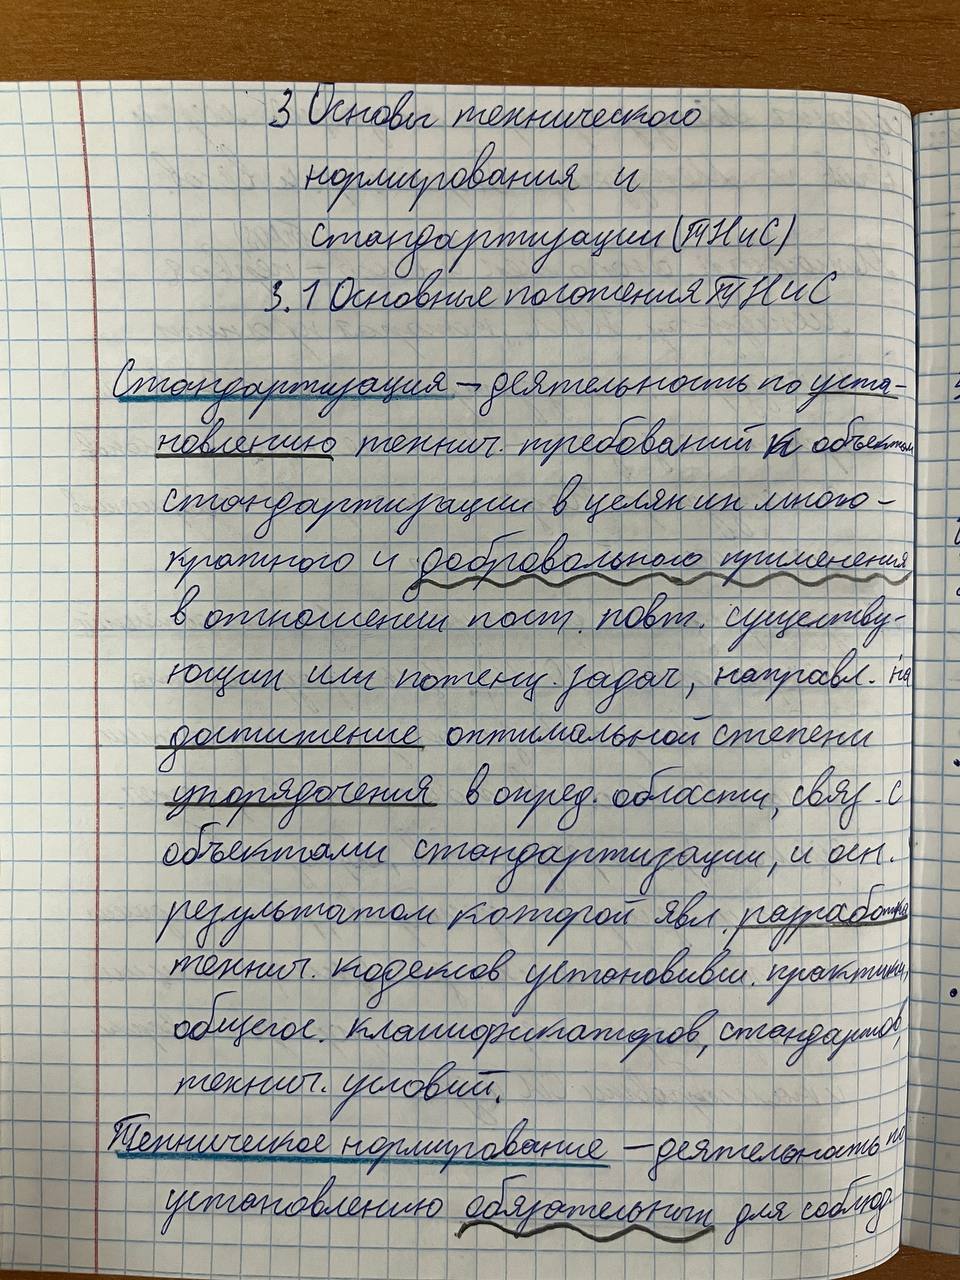 3 Основы технического
нормирования и
стандартизации (ТНиС)
3.1 Основные положения ТНиС
Стандартизация – деятельность по уста-
новлению технич. требований к объектам
стандартизации в целях их много-
кратного и добровольного применения
в отношении пост. повт. существу-
ющих или потенц. задач, направл. на
достижение оптимальной степени
упорядочения в опред. области, связ. с
объектами стандартизации, и осн.
результатом которой явл. разработка
технич. кодексов установивш. практики,
общегос. классификаторов, стандартов,
технич. условий.
Техническое нормирование – деятельность по
установлению обязательных для соблюд.